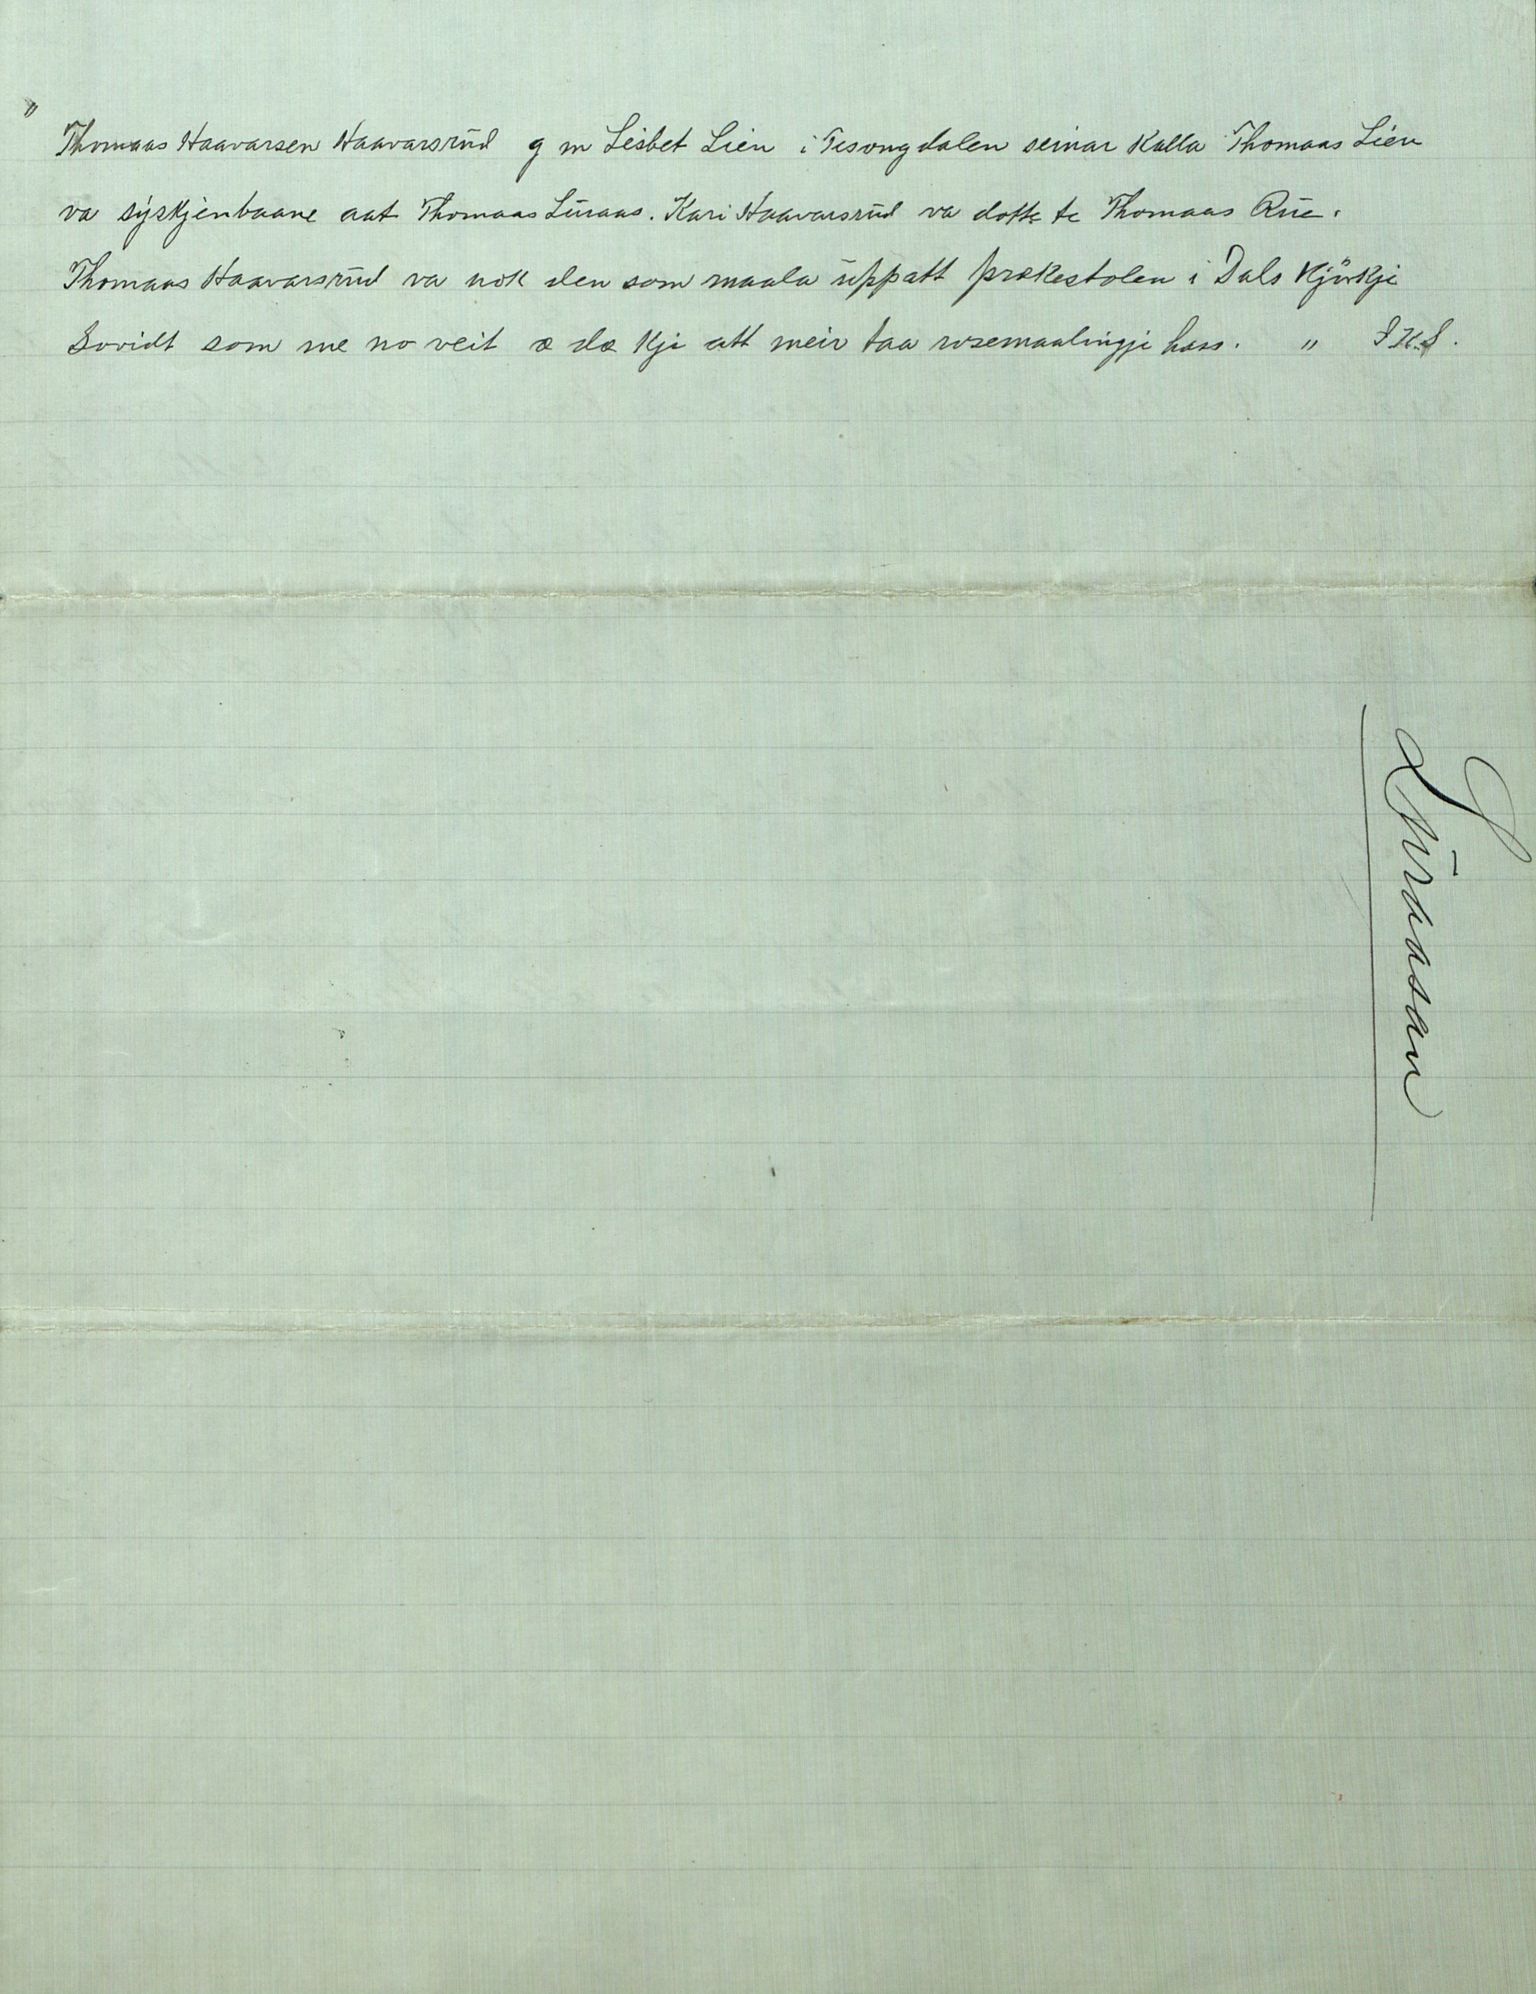 " Thomaas Haavarsen Haavarsrud g m Lisbet Lien i Tesongdalen seinar Kalla Thomaas Lien
va syskjenbaane aat Thomaas Luraas. Kari Haavarsrud va dotte te Thomaas Rue.
Thomaas Haavarsrud va nok den som maala uppatt prækestolen i Dals Kjörkji
Sovidt som me no veit æ dæ kji att meir taa rosemaalingji hass. "
Luraasan